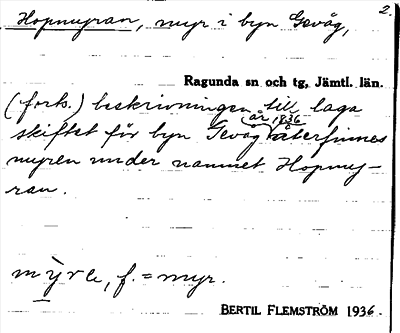 2.
Hopmyran, myr i byn Gevåg,
Ragunda sn och tg, Jämtl. län.
(forts.) beskrivningen till laga
år 1836
skiftet för byn Gevåg återfinnes
myren under namnet Hopmy-
ran.
mỳrɛ, f. = myr.
BERTIL FLEMSTRÖM 1936.